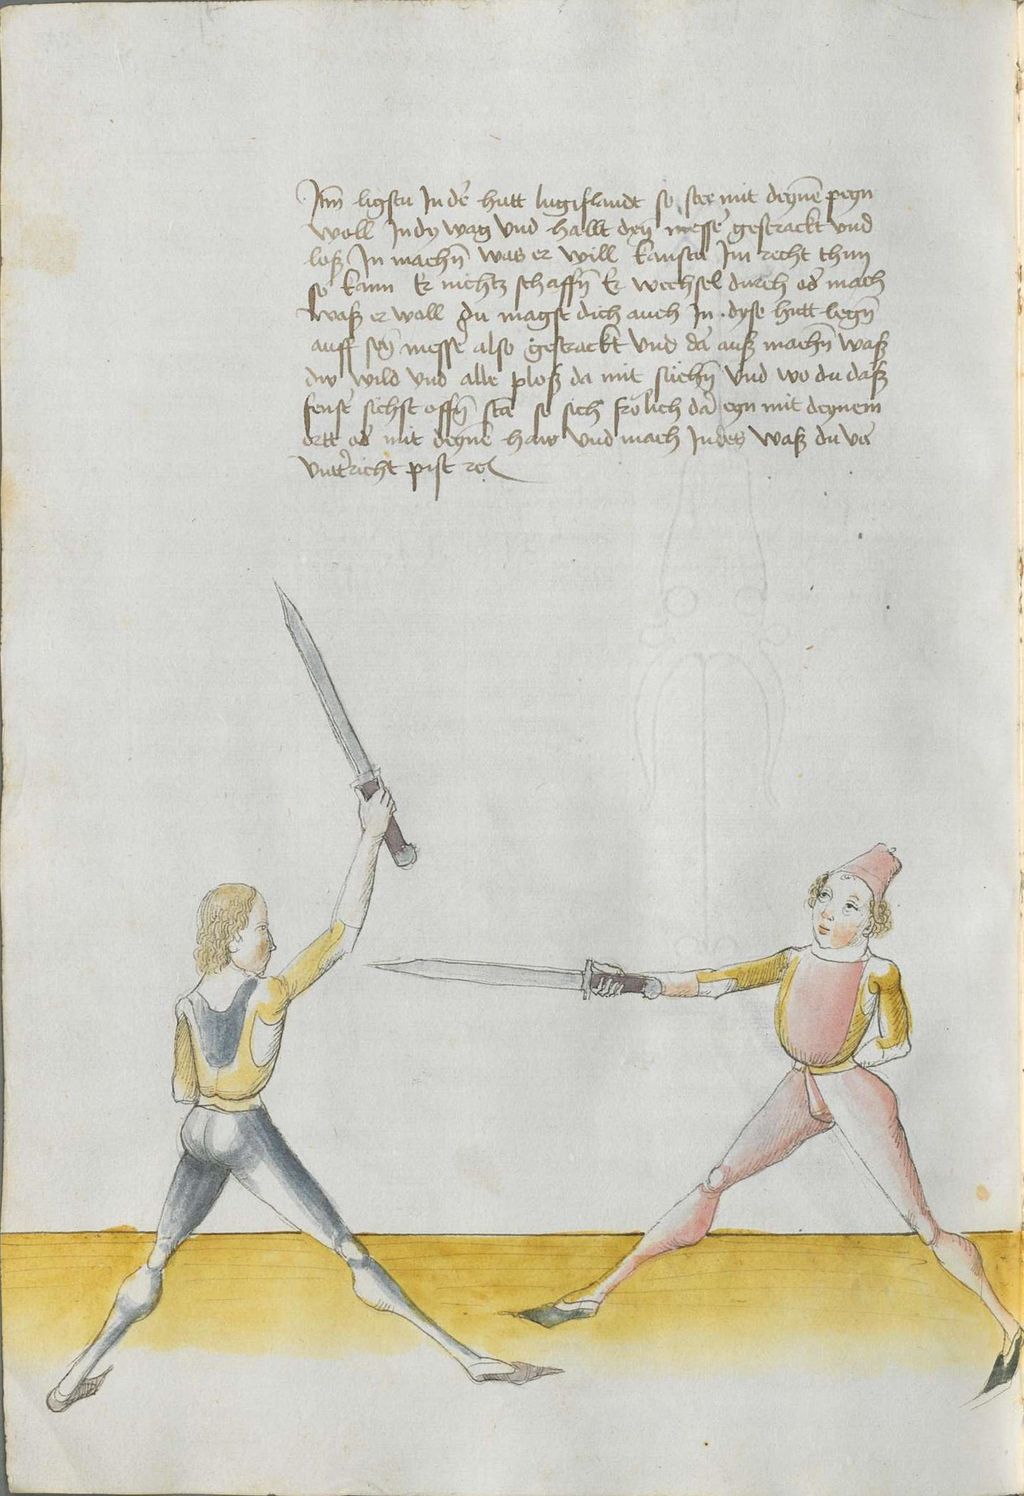 Itm̄ ligstu In de᷑ hutt lugißlandt so stee mit deyne̅ peyn
woll In dy wag vnd hallt deyn̅ messe᷑ gestrackt vnd
loß In mach̅n was er will kanstu Im recht thun
so kann Er nichtz schaff̅n Er wechsel durch od᷑ mach
waß er woll du magst dich auch In dyse hutt leg̅n
auff sey̅ messe᷑ also gestrackt vnd da᷑ auß mach̅n waß
dw wild vnd alle ploß da mit such̅n vnd wo du daß
fenst᷑ sichst off̅n sta so sich frölich da᷑ eyn mit deynem
ortt od᷑ mit deyne̅ haw vnd mach Indes waß du vo᷑
vntt᷑richt pist ꝛc